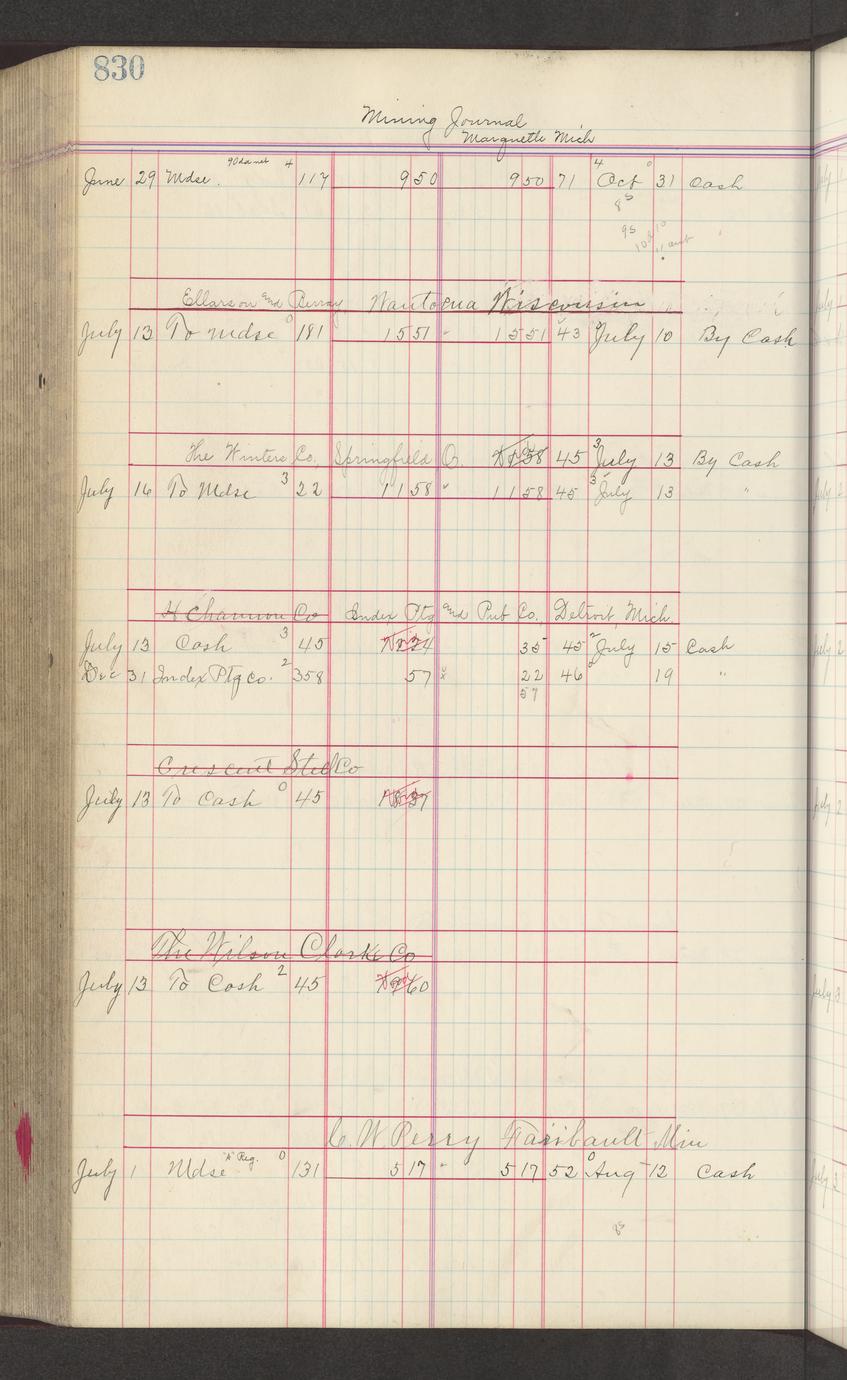 830
Mining Journal
Marquette Mich
June 29 Mdse. 90 da net 4 117 9 50 9 50 71 4 Oct 0 31 Cash
8 5
95
Ellarson and Perray Wautoma Wisconsin
July 13 To Mdse 0 181 15 51 " 15 51 43 July 10 By Cash
The Winters Co. Springfield O. 11 58 45 3 July 13 By Cash
July 16 To Mdse 3 22 11 58 " 11 58 45 3 July 13 "
H Channon Co Index Ptg and Pub Co. Detroit Mich.
July 13 Cash 3 45 35 45 2 July 15 Cash
Dec 31 Index Ptg Co. 2 358 57 22 46 19 "
57
Crescent Steel Co
July 13 To Cash 0 45
The Wilson Clarke Co
July 13 To Cash 2 45 60
C. W. Perry Faribault Min
July 1 Mdse "A" Reg. 0 131 5 17 " 5 17 52 0 Aug 12 Cash